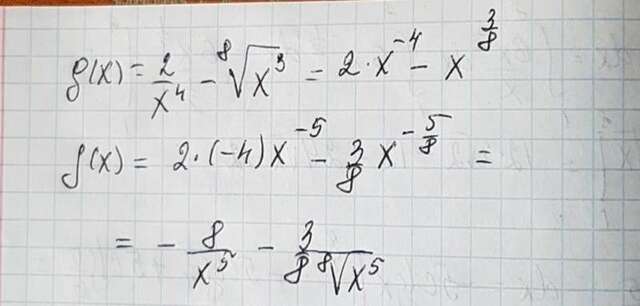 f(x) = 2/x⁴ - ⁸√x³ = 2·x⁻⁴ - x^(3/8)
f(x) = 2·(-4)x⁻⁵ - 3/8 x^(-5/8) =
= - 8/x⁵ - 3/(8 ⁸√x⁵)